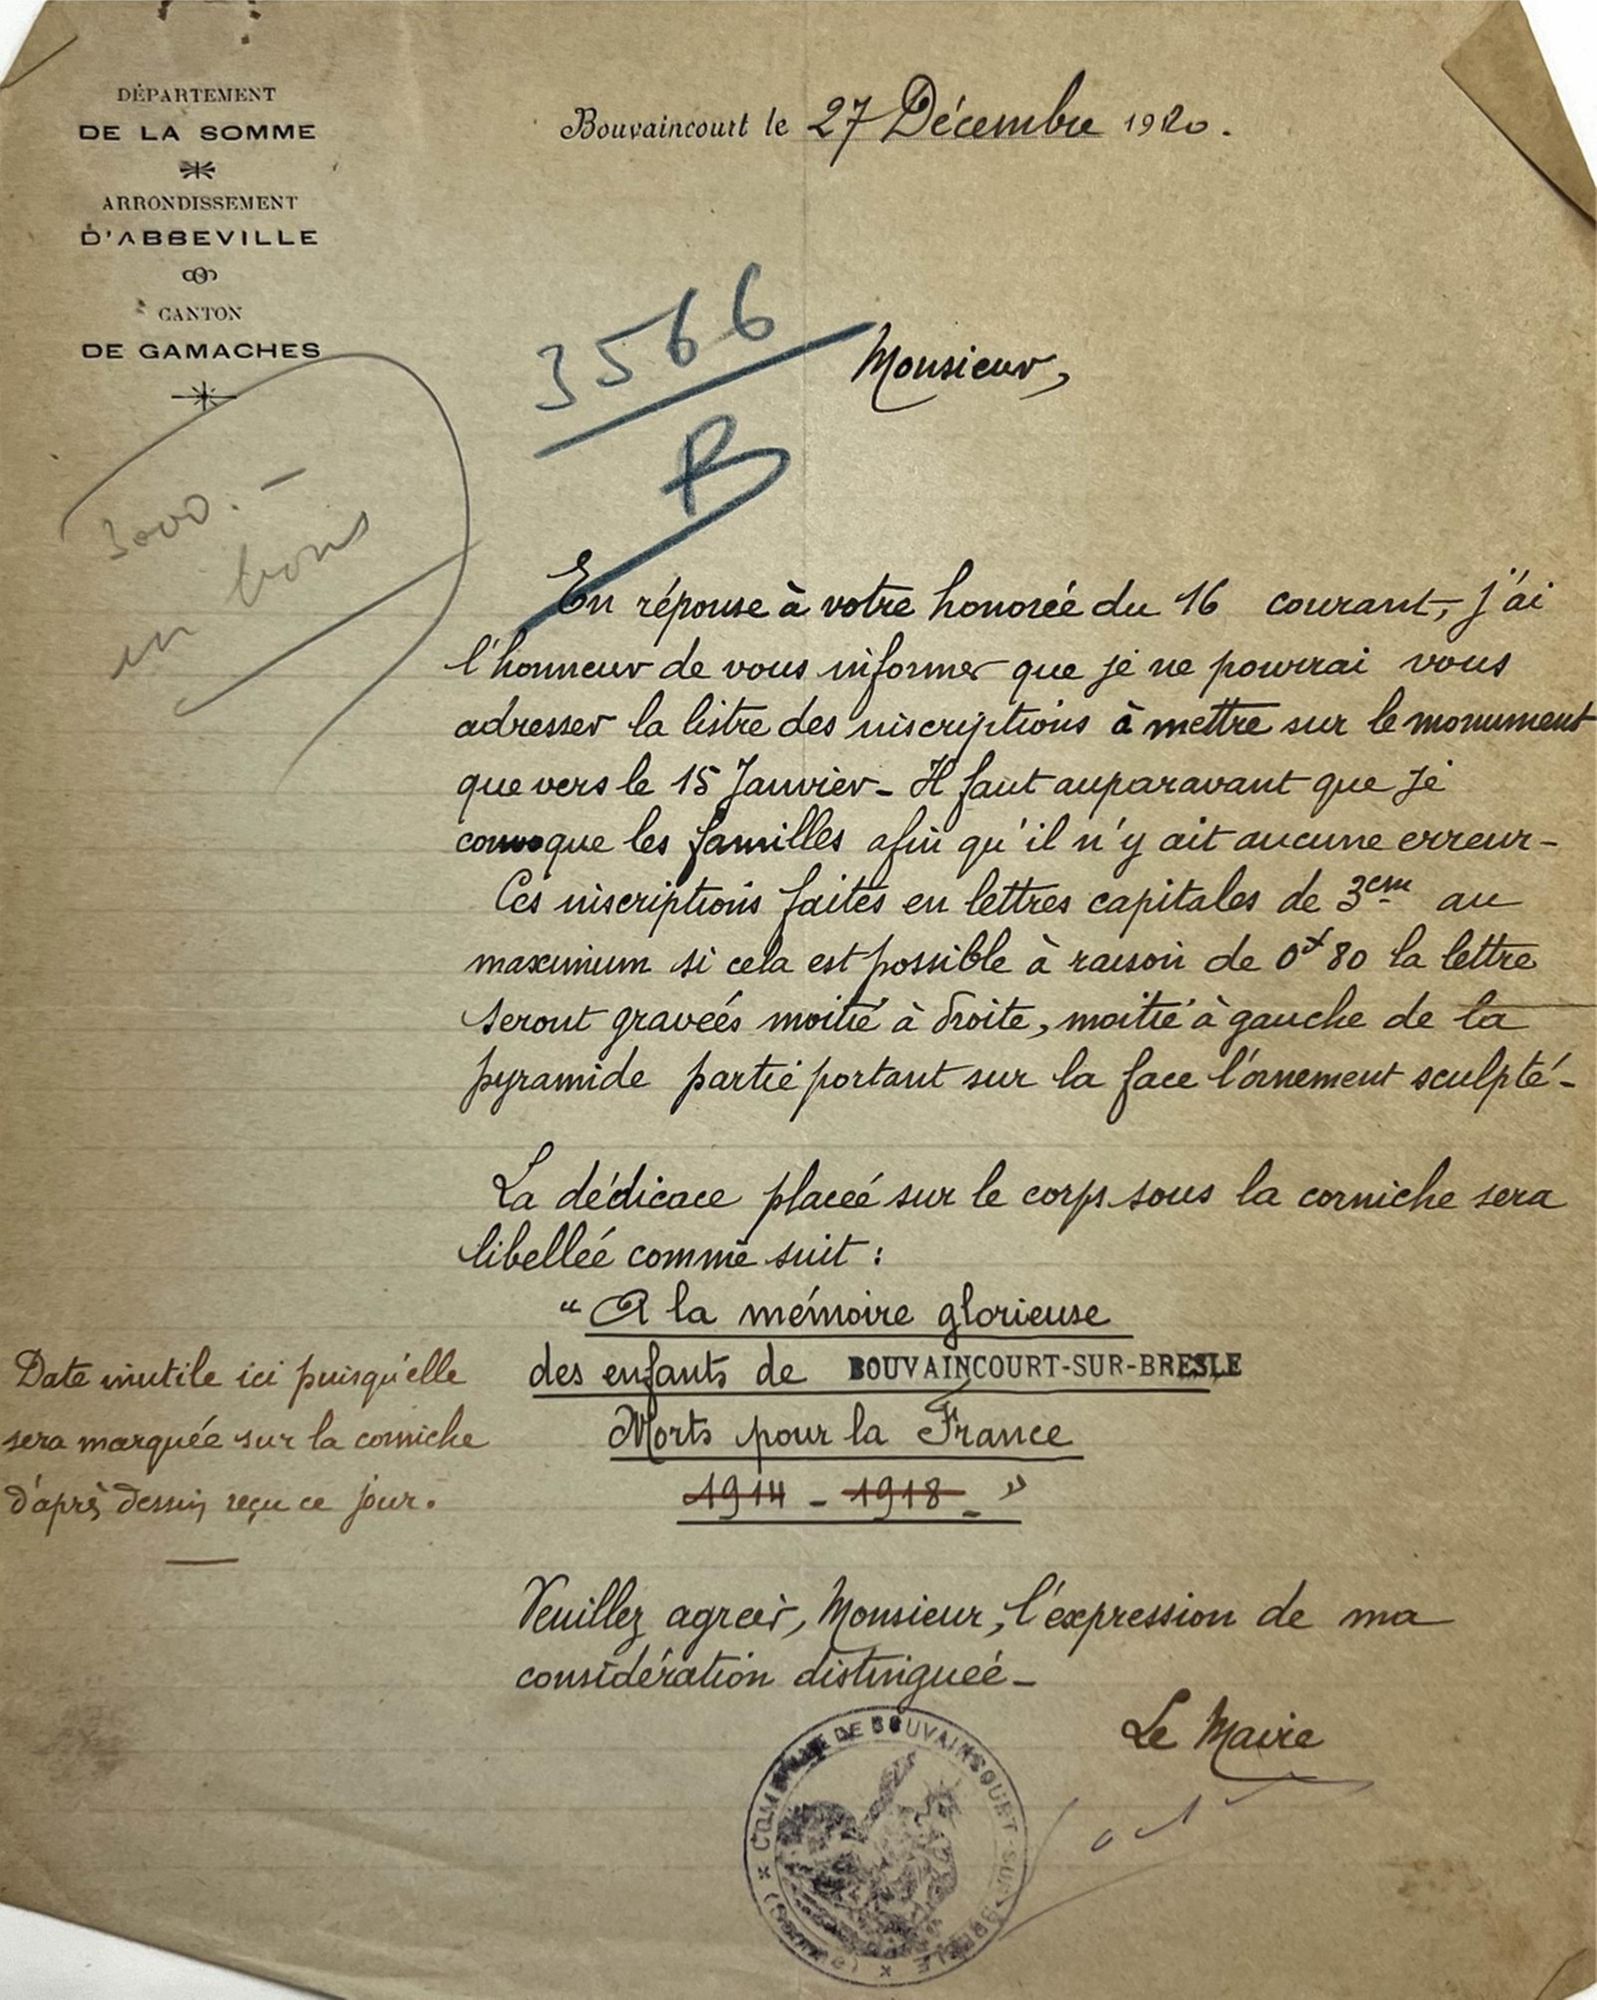 DÉPARTEMENT
DE LA SOMME
ARRONDISSEMENT
D'ABBEVILLE
CANTON
DE GAMACHES
Bouvaincourt le 27 Décembre 1920.
3566
B
3000.-
en bons
Monsieur,
En réponse à votre honorée du 16 courant, j'ai
l'honneur de vous informer que je ne pourrai vous
adresser la listre des inscriptions à mettre sur le monument
que vers le 15 Janvier - Il faut auparavant que je
convoque les familles afin qu'il n'y ait aucune erreur -
Ces inscriptions faites en lettres capitales de 3cm au
maximum si cela est possible à raison de 0f80 la lettre
seront gravées moitié à droite, moitié à gauche de la
pyramide partie portant sur la face l'ornement sculpté -
La dédicace placée sur le corps sous la corniche sera
libellée comme suit :
" A la mémoire glorieuse
des enfants de BOUVAINCOURT-SUR-BRESLE
Morts pour la France
1914 - 1918 - "
Date inutile ici puisqu'elle
sera marquée sur la corniche
d'après dessin reçu ce jour.
Veuillez agréer, Monsieur, l'expression de ma
considération distinguée -
Le Maire
COMMUNE DE BOUVAINCOURT-SUR-BRESLE (Somme)